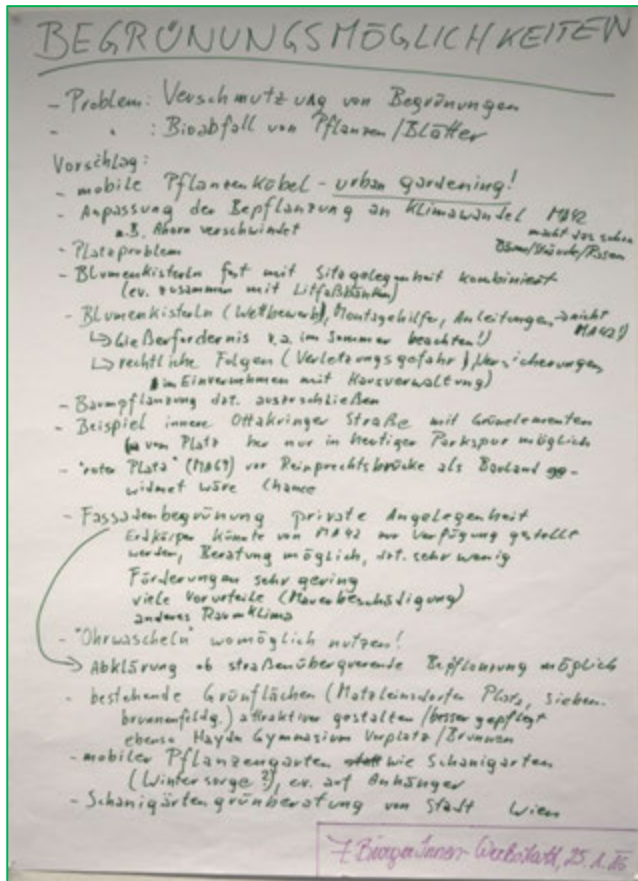 BEGRÜNUNGSMÖGLICHKEITEN
- Problem: Verschmutzung von Begrünungen
- " : Bioabfall von Pflanzen/Blätter
Vorschlag:
- mobile Pflanzenkübel - urban gardening!
- Anpassung der Bepflanzung an Klimawandel MA42
z.B. Ahorn verschwindet macht das schon
Bäume/Stäucher/Rasen
- Platzproblem
- Blumenkisterln fest mit Sitzgelegenheit kombiniert
(ev. zusammen mit Litfaßbänken)
- Blumenkisterln (Wettbewerb), Montagehilfe, Anleitungen → nicht
MA42!)
↳ Gießerfordernis v.a. im Sommer beachten!)
↳ rechtliche Folgen (Verletzungsgefahr), Versicherungen,
im Einvernehmen mit Hausverwaltung)
- Baumpflanzung dzt. auszuschließen
- Beispiel innere Ottakringer Straße mit Grünelementen
vom Platz her nur in heutiger Parkspur möglich
- "roter Platz" (MA69) vor Reinprechtsbrücke als Bauland ge-
widmet wäre Chance
- Fassadenbegrünung private Angelegenheit
Erdkörper könnte von MA42 zur Verfügung gestellt
werden, Beratung möglich, dzt. sehr wenig
Förderungen sehr gering
viele Vorurteile (Mauerbeschädigung)
anderes Raumklima
- "Ohrwascheln" womöglich nutzen!
→ Abklärung ob straßenüberquerende Bepflanzung möglich
- bestehende Grünflächen (Matzleinsdorfer Platz, Sieben-
brunnenfeldg.) attraktiver gestalten/besser gepflegt
ebenso Haydn Gymnasium Vorplatz/Brunnen
- mobiler Pflanzengarten wie Schanigarten
(Wintersorge?), ev. auf Anhänger
- Schanigärtengrünberatung von Stadt Wien
7. BürgerInnen-Werkstatt, 25.1.16